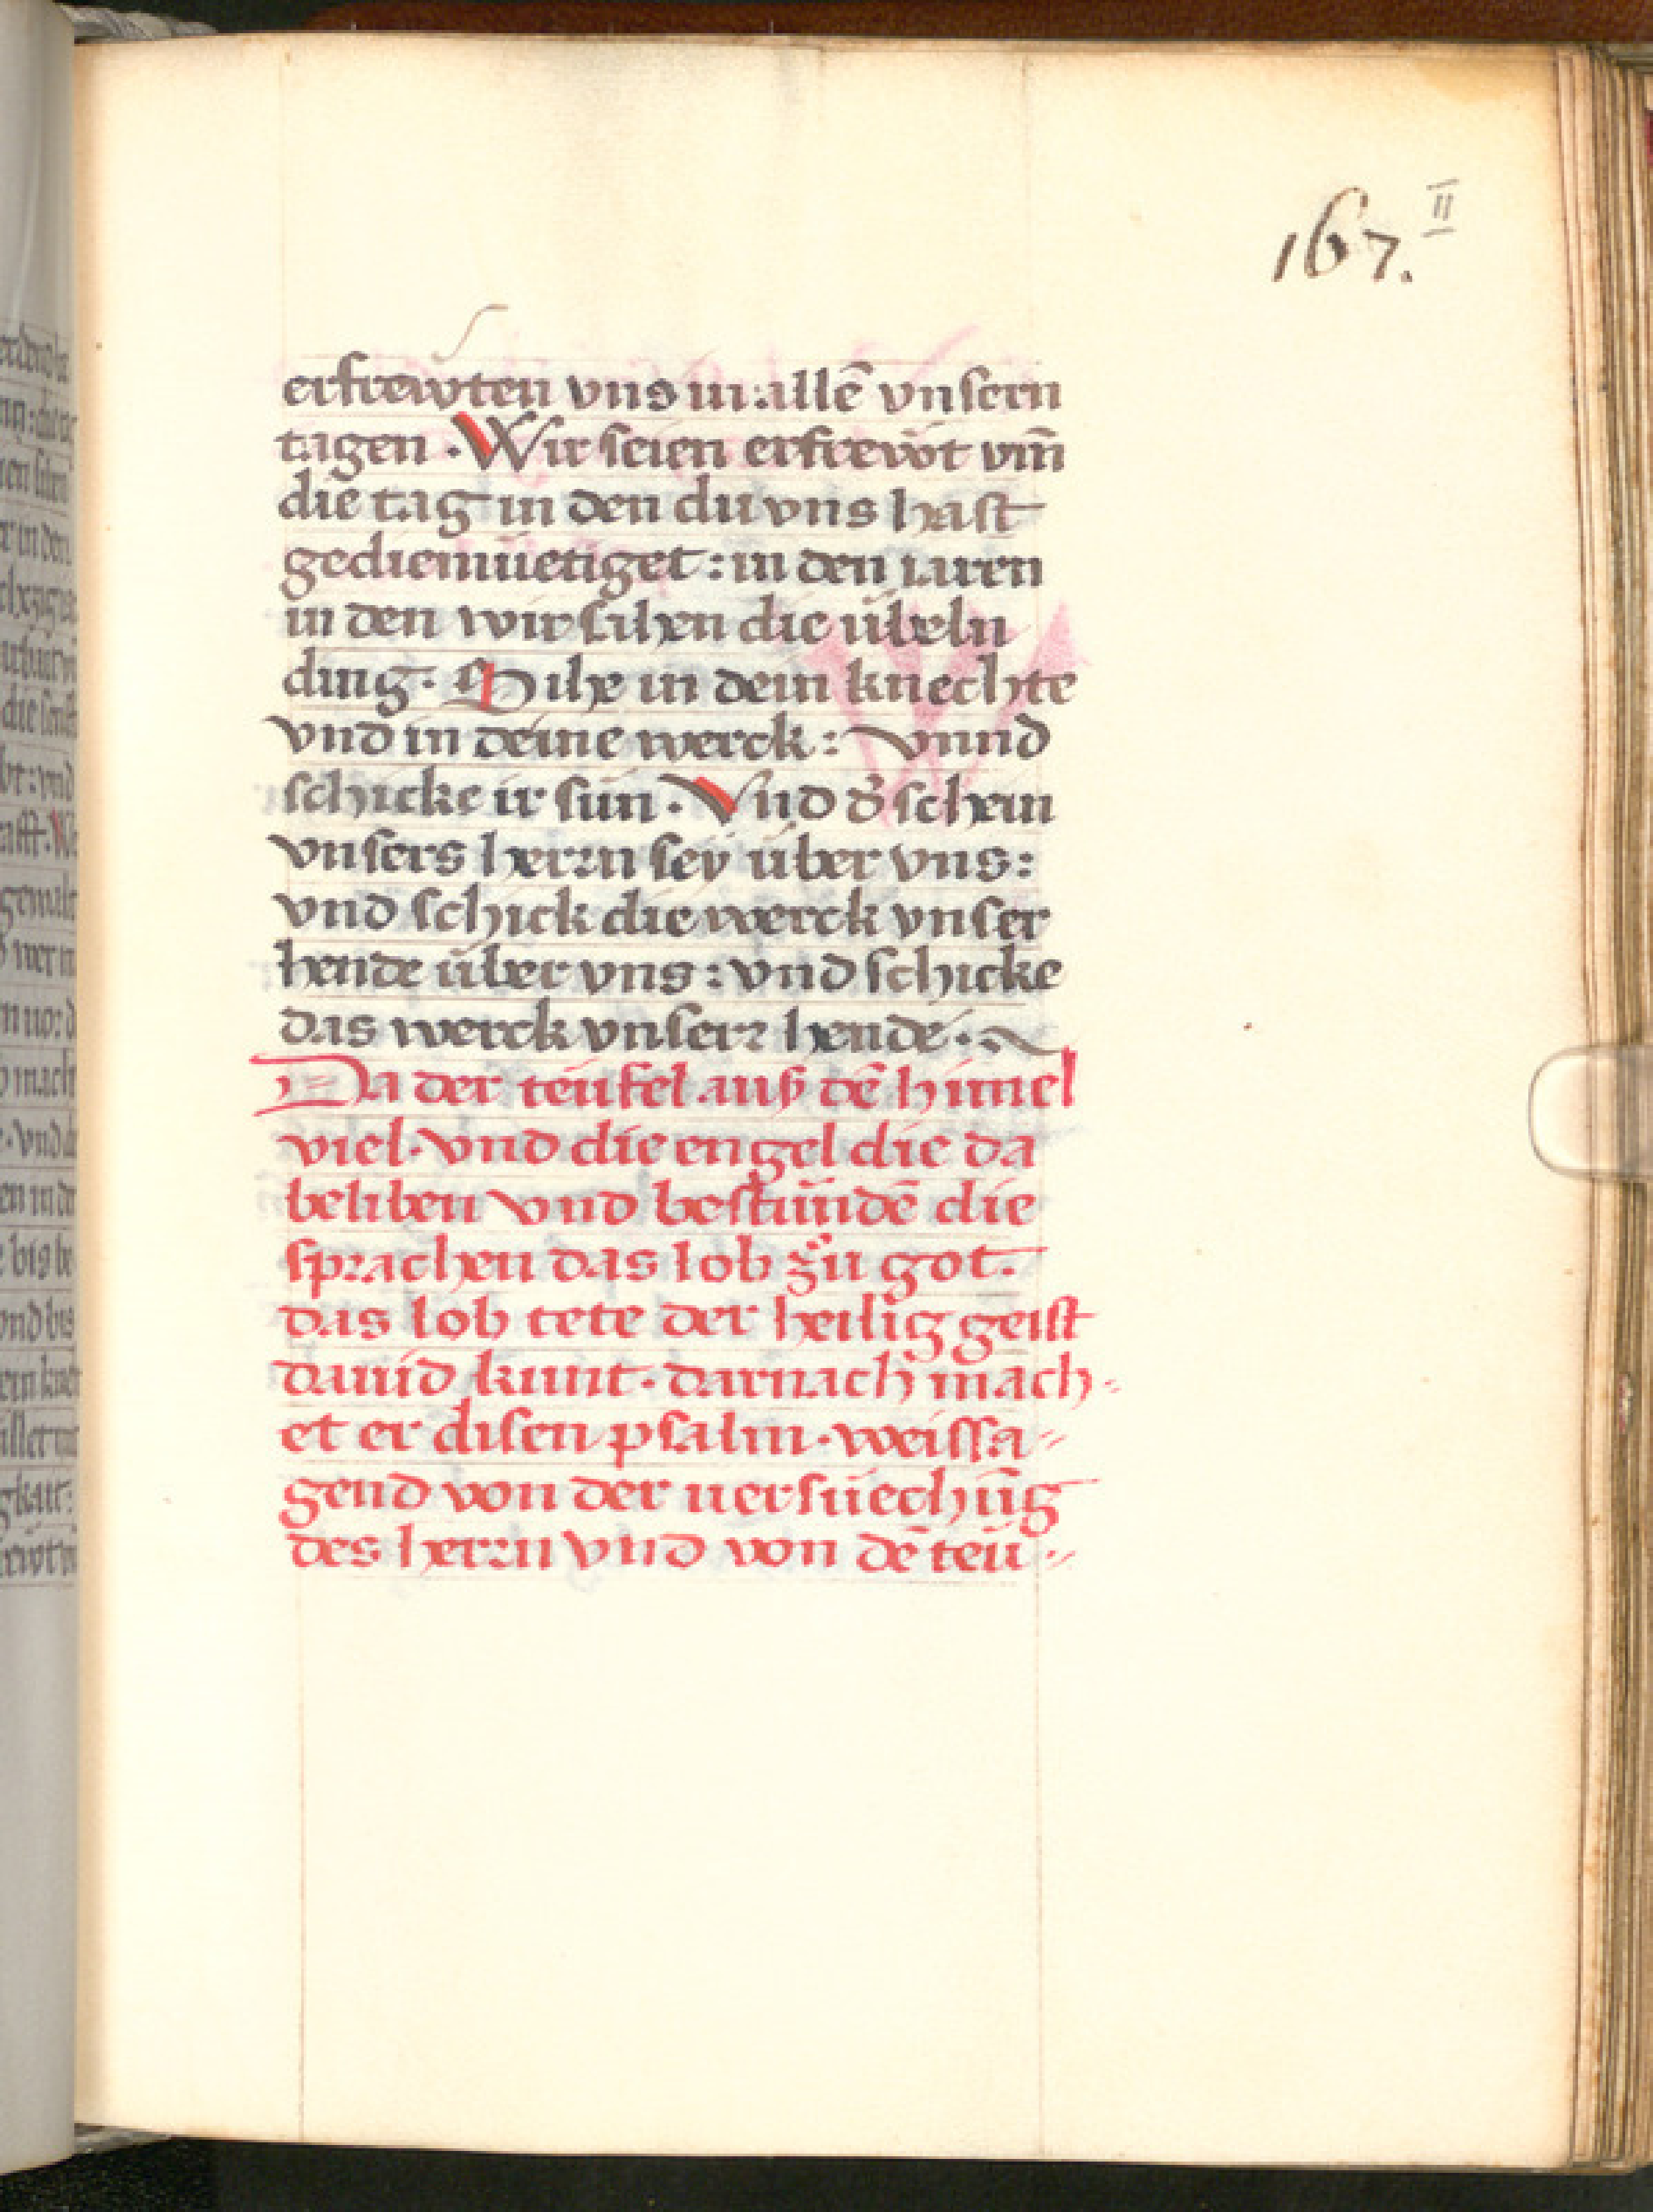 167. II
erfrewten vns in allē vnsern
tagen . Wir seien erfrewt vm̄
die tag in den du vns hast
gediemüetiget : in den iaren
in den wir sahen die übeln
ding . Sihe in dein knechte
vnd in deine werck : vnnd
schicke ir sün . Vnd d̕ schein
vnsers herrn sey über vns :
vnd schick die werck vnser
hende über vns : vnd schicke
das werck vnserr hende .
Da der teüfel auß dē himel
viel . vnd die engel die da
beliben vnd bestündē die
sprachen das lob zu got .
das lob tete der heilig geist
dauid kunt . darnach mach-
et er disen psalm . weissa-
gend von der uersüechūg
des herrn vnd von dē teü-